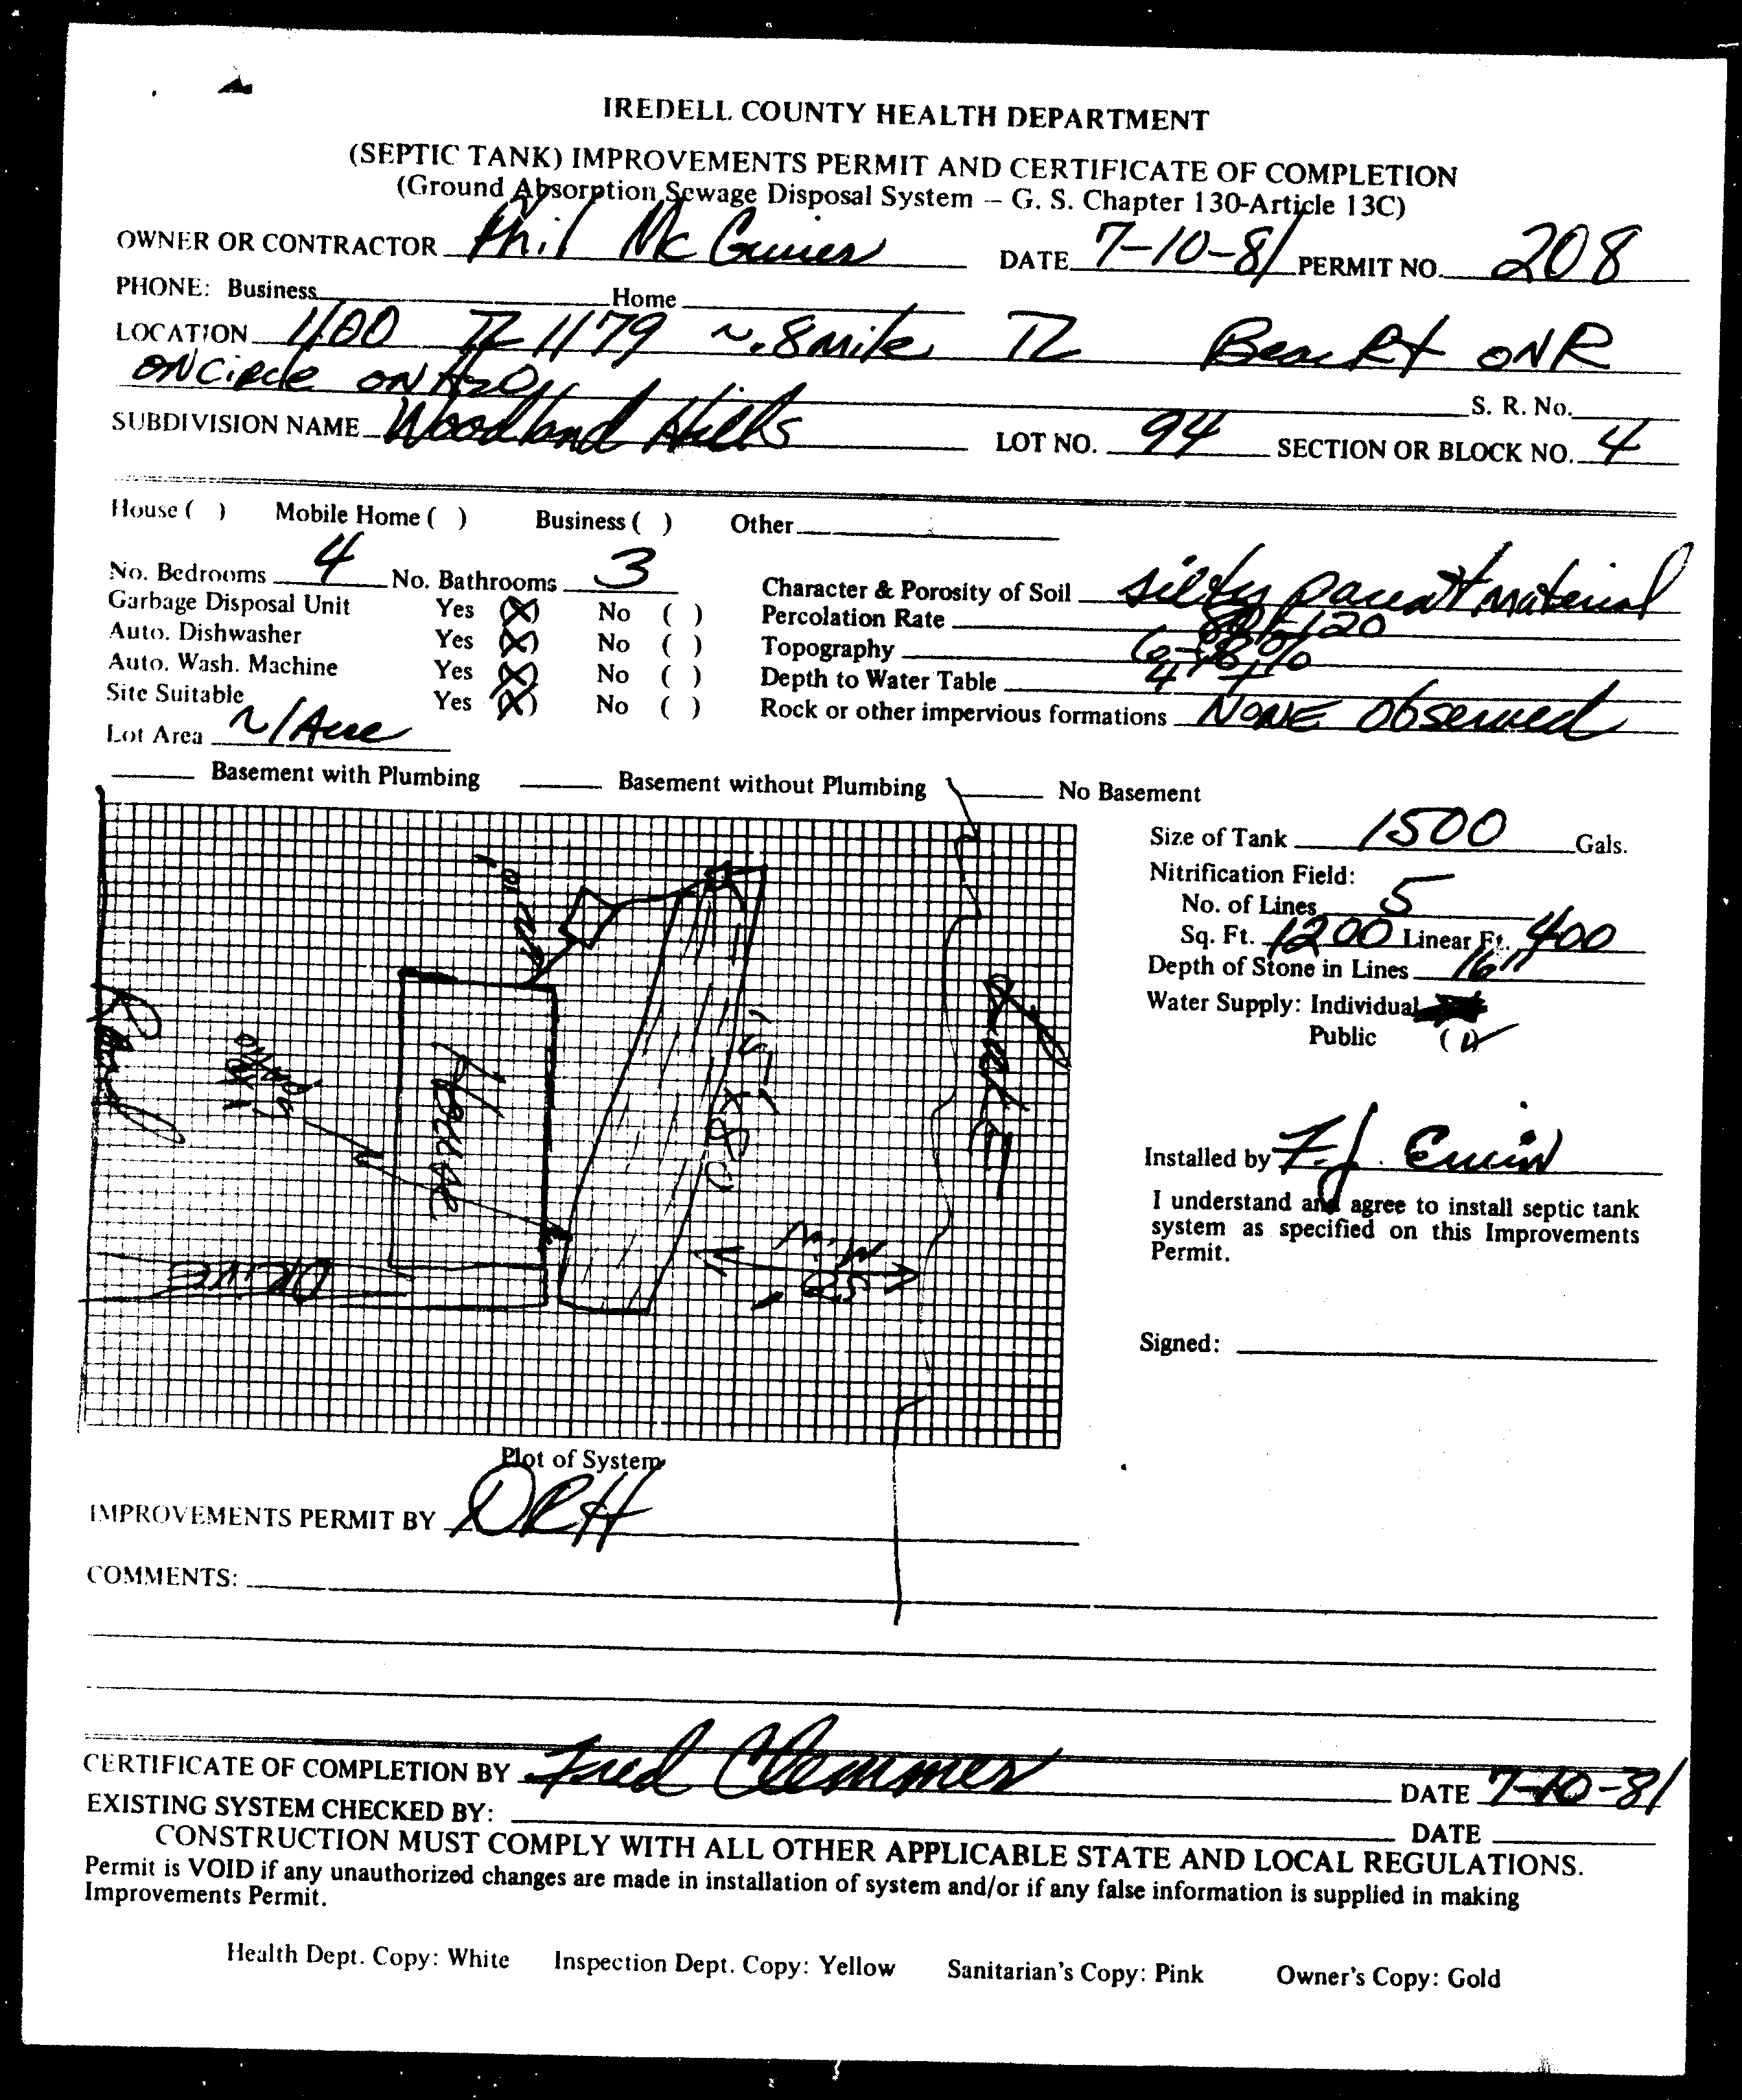 IREDELL COUNTY HEALTH DEPARTMENT
(SEPTIC TANK) IMPROVEMENTS PERMIT AND CERTIFICATE OF COMPLETION
(Ground Absorption Sewage Disposal System – G. S. Chapter 130-Article 13C)
OWNER OR CONTRACTOR Phil McGuier DATE 7-10-81 PERMIT NO. 208
PHONE: Business Home
LOCATION 1100 TL 1179 ~.8 mile TL Bear Rt ON R
ON Circle ON H2O S. R. No.
SUBDIVISION NAME Woodland Hills LOT NO. 94 SECTION OR BLOCK NO. 4
House ( ) Mobile Home ( ) Business ( ) Other
No. Bedrooms 4 No. Bathrooms 3 Character & Porosity of Soil silty parent material
Garbage Disposal Unit Yes (X) No ( ) Percolation Rate 120
Auto. Dishwasher Yes (X) No ( ) Topography 6-8%
Auto. Wash. Machine Yes (X) No ( ) Depth to Water Table 4'+
Site Suitable Yes (X) No ( ) Rock or other impervious formations NONE observed
Lot Area ~1 Acre
Basement with Plumbing Basement without Plumbing No Basement
Size of Tank 1500 Gals.
Nitrification Field:
No. of Lines 5
Sq. Ft. 1200 Linear Ft. 400
Depth of Stone in Lines 16"
Water Supply: Individual
Public (✓)
House
5-3'x80'
Min
50'
DRIVE
Road
Installed by F.J. Erwin
I understand and agree to install septic tank
system as specified on this Improvements
Permit.
Signed:
Plot of System
IMPROVEMENTS PERMIT BY DRH
COMMENTS:
CERTIFICATE OF COMPLETION BY Fred Clemmer DATE 7-10-81
EXISTING SYSTEM CHECKED BY: DATE
CONSTRUCTION MUST COMPLY WITH ALL OTHER APPLICABLE STATE AND LOCAL REGULATIONS.
Permit is VOID if any unauthorized changes are made in installation of system and/or if any false information is supplied in making
Improvements Permit.
Health Dept. Copy: White Inspection Dept. Copy: Yellow Sanitarian's Copy: Pink Owner's Copy: Gold